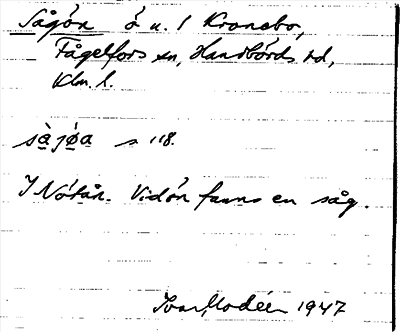 Sågön ö u. l Kronebo,
Fågelfors sn, Handbörds hd,
Klm. l.
sàjøa s 118.
I Nötån. Vid ön fanns en såg.
Ivar Modéer 1947